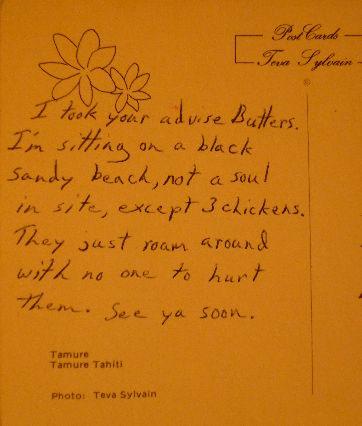 Post Cards
Teva Sylvain
I took your advise Butters.
I'm sitting on a black
sandy beach, not a soul
in site, except 3 chickens.
They just roam around
with no one to hurt
them. See ya soon.
Tamure
Tamure Tahiti
Photo: Teva Sylvain